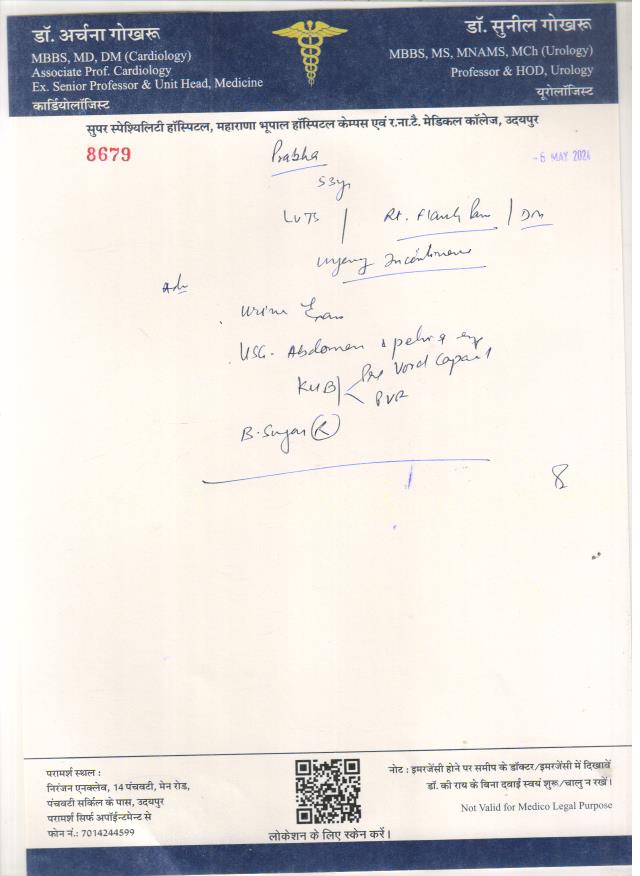 डॉ. अर्चना गोखरू
MBBS, MD, DM (Cardiology)
Associate Prof. Cardiology
Ex. Senior Professor & Unit Head, Medicine
कार्डियोलॉजिस्ट
डॉ. सुनील गोखरू
MBBS, MS, MNAMS, MCh (Urology)
Professor & HOD, Urology
यूरोलॉजिस्ट
सुपर स्पेश्यिलिटी हॉस्पिटल, महाराणा भूपाल हॉस्पिटल केम्पस एवं र.ना.टै. मेडिकल कॉलेज, उदयपुर
8679
Prabha
- 6 MAY 2024
53y
LUTS | Rt. Flank Pain | DM
Urgency Incontinence
Adv
Urine Exam
USG. Abdomen & pelvis
KUB Pre Void Capacit
PVR
B. Sugar (R)
परामर्श स्थल :
निरंजन एनक्लेव, 14 पंचवटी, मेन रोड,
पंचवटी सर्किल के पास, उदयपुर
परामर्श सिर्फ अपॉईन्टमेन्ट से
फोन नं.: 7014244599
लोकेशन के लिए स्केन करें।
नोट : इमरजेंसी होने पर समीप के डॉक्टर/इमरजेंसी में दिखावें
डॉ. की राय के बिना दवाई स्वयं शुरू/चालु न रखें।
Not Valid for Medico Legal Purpose